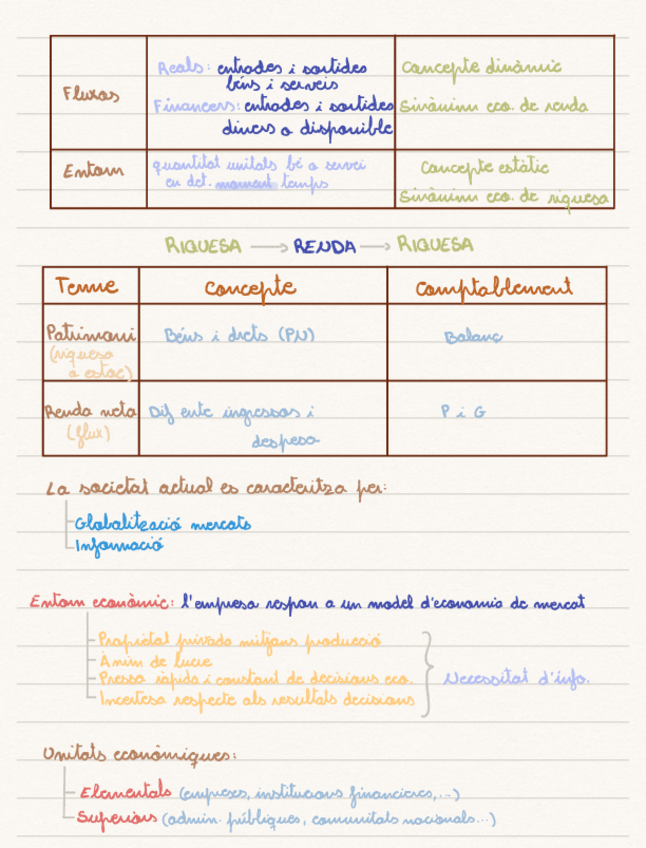 Fluxos
Reals: entrades i sortides
béns i serveis
Financers: entrades i sortides
diners o disponible
Concepte dinàmic
Sinònim eco. de renda
Entorn
quantitat unitats bé o servei
en det. moment temps
Concepte estàtic
Sinònim eco. de riquesa
RIQUESA → RENDA → RIQUESA
Terme
Concepte
Comptablement
Patrimoni
(riquesa
o estoc)
Béns i drets (PN)
Balanç
Renda neta
(flux)
Dif entre ingressos i
despesa
P i G
La societat actual es caracteritza per:
Globalització mercats
Informació
Entorn econòmic: l'empresa respon a un model d'economia de mercat
Propietat privada mitjans producció
Ànim de lucre
Presa ràpida i constant de decisions eco.
Incertesa respecte als resultats decisions
Necessitat d'info.
Unitats econòmiques:
Elementals (empreses, institucions financieres,...)
Superiors (admin. públiques, comunitats nacionals...)